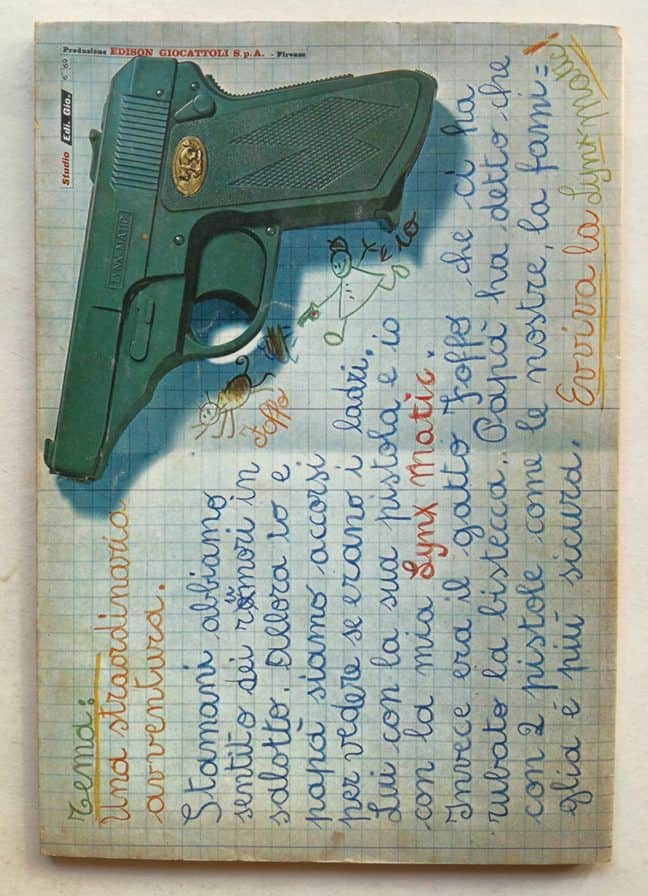 Produzione EDISON GIOCATTOLI S.p.A. - Firenze
Studio Edi. Gio. 6 '69
LYNX-MATIC
Tema:
Una straordinaria
avventura.
Stamani abbiamo
sentito dei rumori in
salotto. Allora io e
papà siamo accorsi
per vedere se erano i ladri.
Lui con la sua pistola e io
con la mia Lynx Matic.
Invece era il gatto Foffo che ci ha
rubato la bistecca. Papà ha detto che
con 2 pistole come le nostre, la fami=
glia è più sicura.
Evviva la Lynx-Matic!
Foffo
io